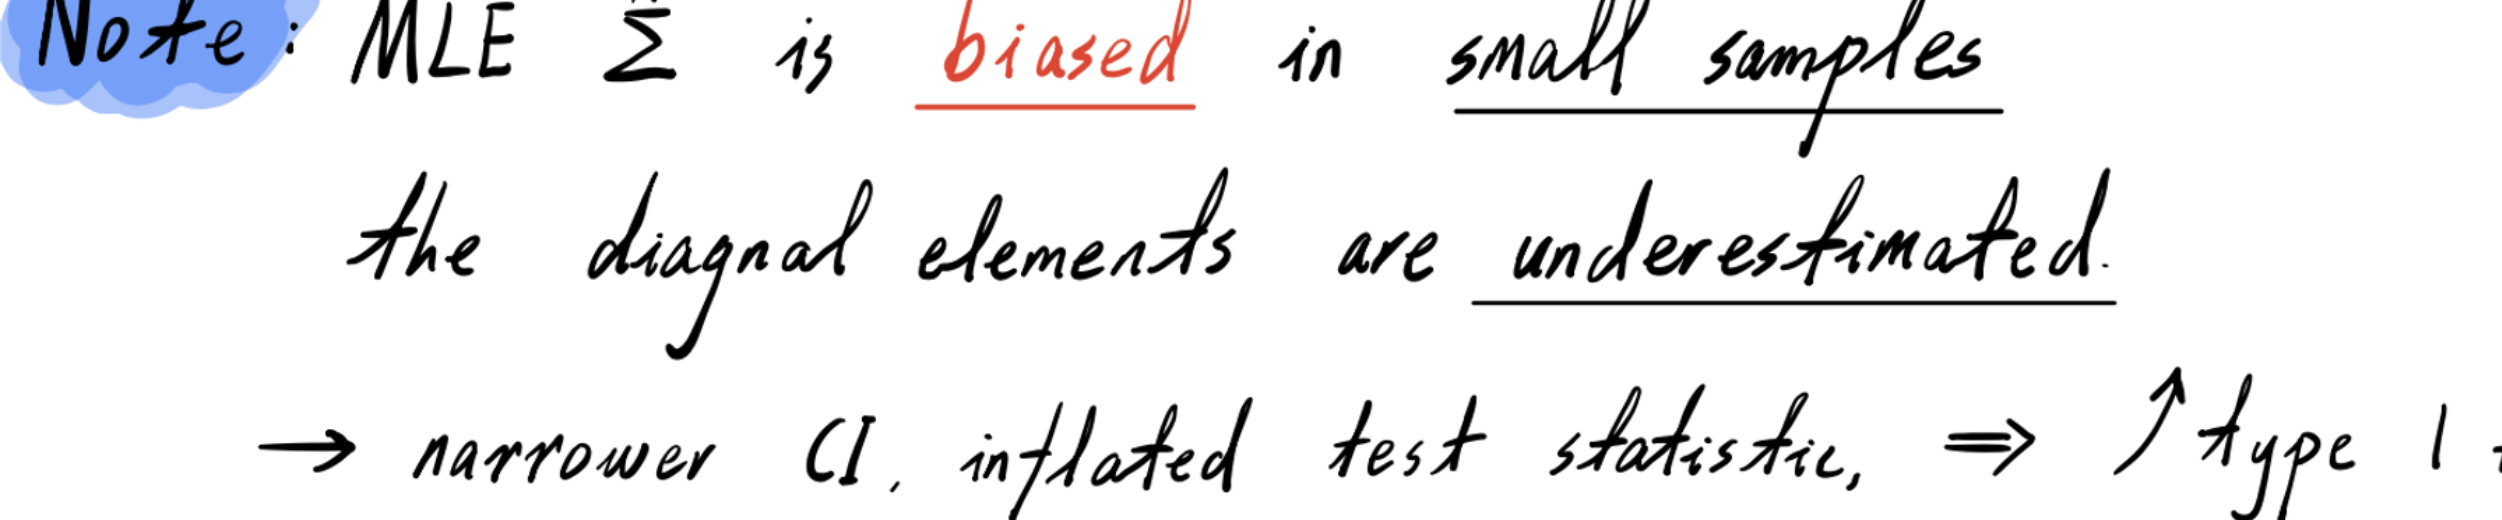 Note: MLE Σ̂ is biased in small samples
the diagnal elements are underestimated.
→ narrower CI, inflated test statistic, ⇒ ↗ type 1